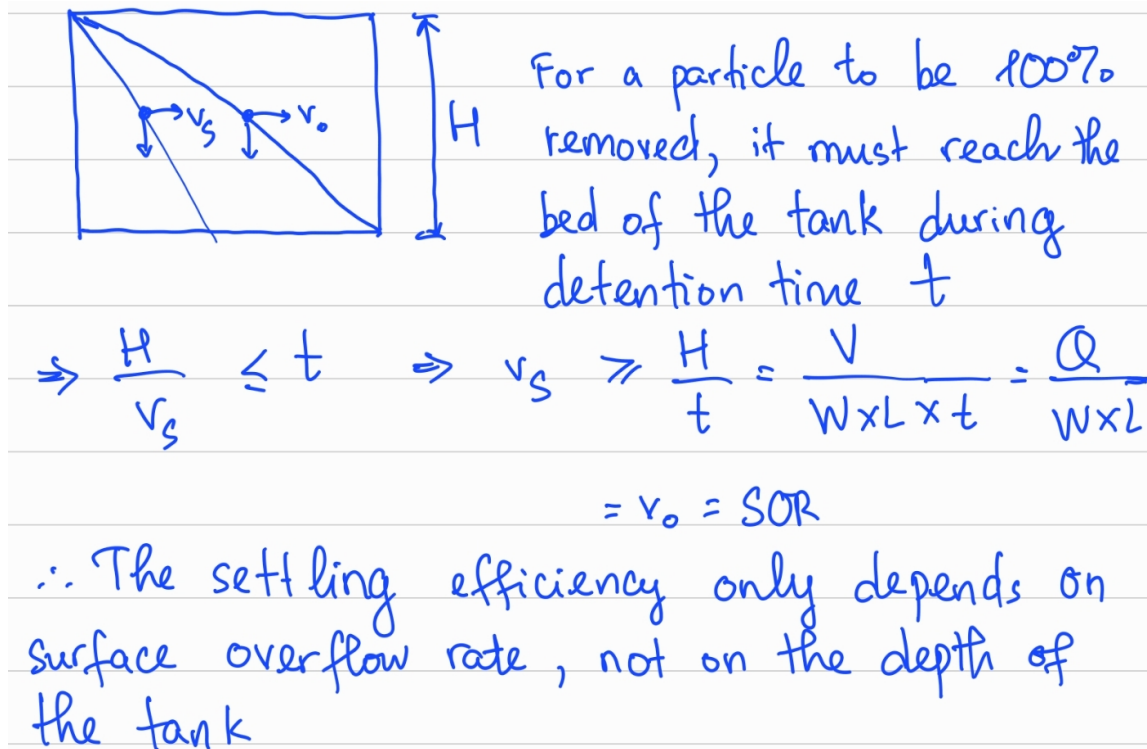 For a particle to be 100%
removed, it must reach the
bed of the tank during
detention time t
vs
v₀
H
⇒ H/vs ≤ t ⇒ vs ≥ H/t = V/(W×L×t) = Q/(W×L)
= v₀ = SOR
∴ The settling efficiency only depends on
surface overflow rate, not on the depth of
the tank